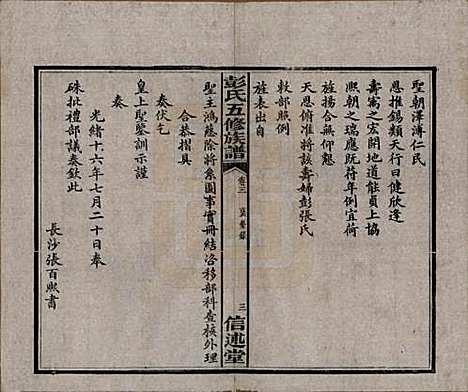 聖朝澤溥仁民
恩推錫類天行日健欣逢
壽寓之宏開地道能貞上協
熙朝之瑞應既符年例宜荷
旌揚合無仰懇
天恩俯准將該壽婦彭張氏
敕部照例
旌表出自
彭氏五修族譜
卷三
三
信述堂
聖主鴻慈除將系圖事實冊結洛移部科查核外理
合恭摺具
奏伏乞
皇上聖鑒訓示謹
奏
光緒十六年七月二十日奉
硃批禮部議奏欽此
長沙張百熙書